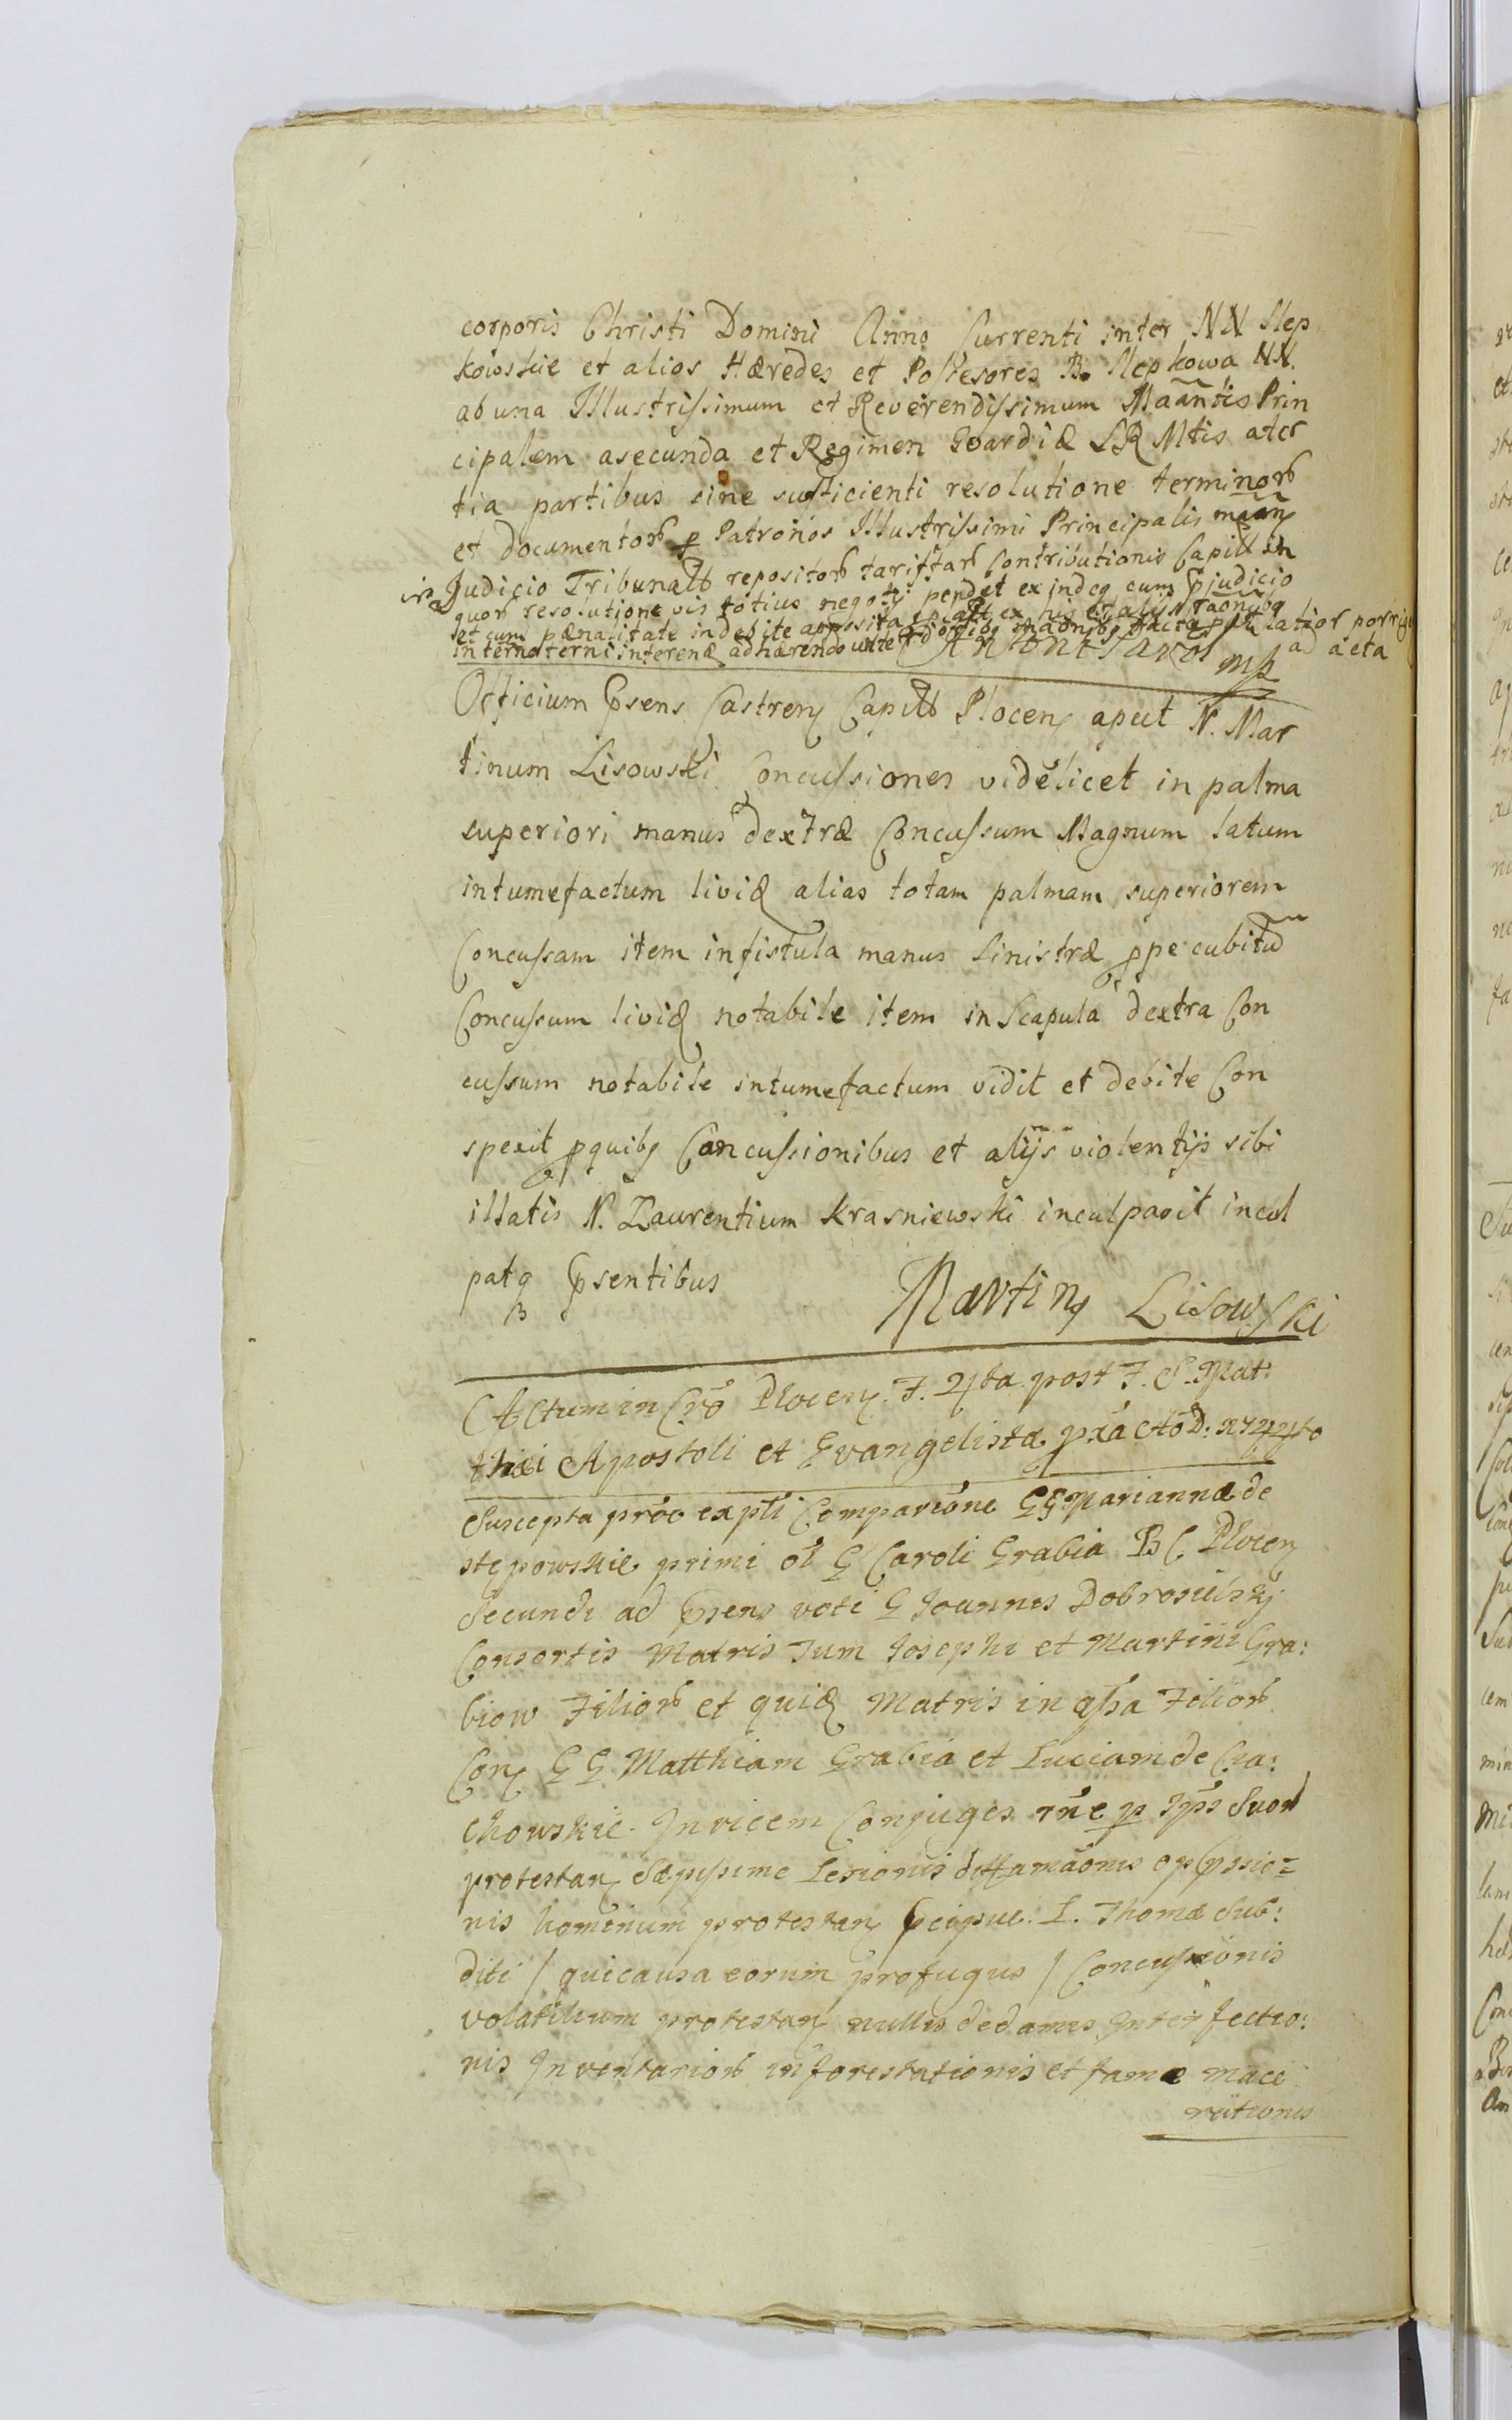 corporis Christi Domini Anno Currenti inter NN Slep
kowskie et alios Hæredes et Possesores B. Slepkowa NN.
ab una Illustrissimum et Reverendissimum Maāntis Prin
cipalem a secunda et Regimen Gvardiæ SRMtis a ter
tia partibus sine sufficienti resolutione terminorb
et documentorb p Patronos Illustrissimi Principalis maan
Judicio Tribunalb repositorb tariffarb Contributionis Capitl in
quorb resolutione vis totius negotÿ pendet exindeq cum Pjudicio
et cum pænalitate indebite apposita ex his et alÿs raōnibq latior porrig
in terno terni interenæ adhærendo ad acta
mp
Officium Psens Castren Capitlb Plocen aput N. Mar
tinum Lisowski Concussiones videlicet in palma
superiori manus dextræ Concussum Magnum latum
intumefactum livid alias totam palmam superiorem
Concussam item in fistula manus Sinistræ ppe cubitū
Concussum livid notabile item in Scapula dextra Con
cussum notabile intumefactum vidit et debite Con
spexit pquibq Concussionibus et alÿs violentÿs sibi
illatis N. Laurentium Krasniewski inculpavit incul
patq Psentibus
Martinq Lisowski
Actum in Crō Plocen. F. 4ta post F. S. Mat:
thæi Apostoli et Evangelistæ pxa Ao D: 1744to
Suscepta prōc expti Comparione GG Mariannæ de
stępowskie primi ol G Caroli Grabia BC Plocen
Secundi ad Psens voti G Joannis Dobrosielskÿ
Consortis Matris Tum Josephi et Martini Gra:
biow Filiorb et quid Matris in assa Filiorb
Con GG Matthiam Grabia et Luciam de Cza:
chowskie Invicem Conjuges rne p Ips Suorb
protestan Sæpissime Lesionis diffamāonis opPssio=
nis hominum protestan Pcipue L. Thomæ Sub:
diti / qui causa eorum profugus / Concussionis
volatilium protestan nullis de damis Interfectio:
nis Inventariorb inforestationis et famæ mace
rationis